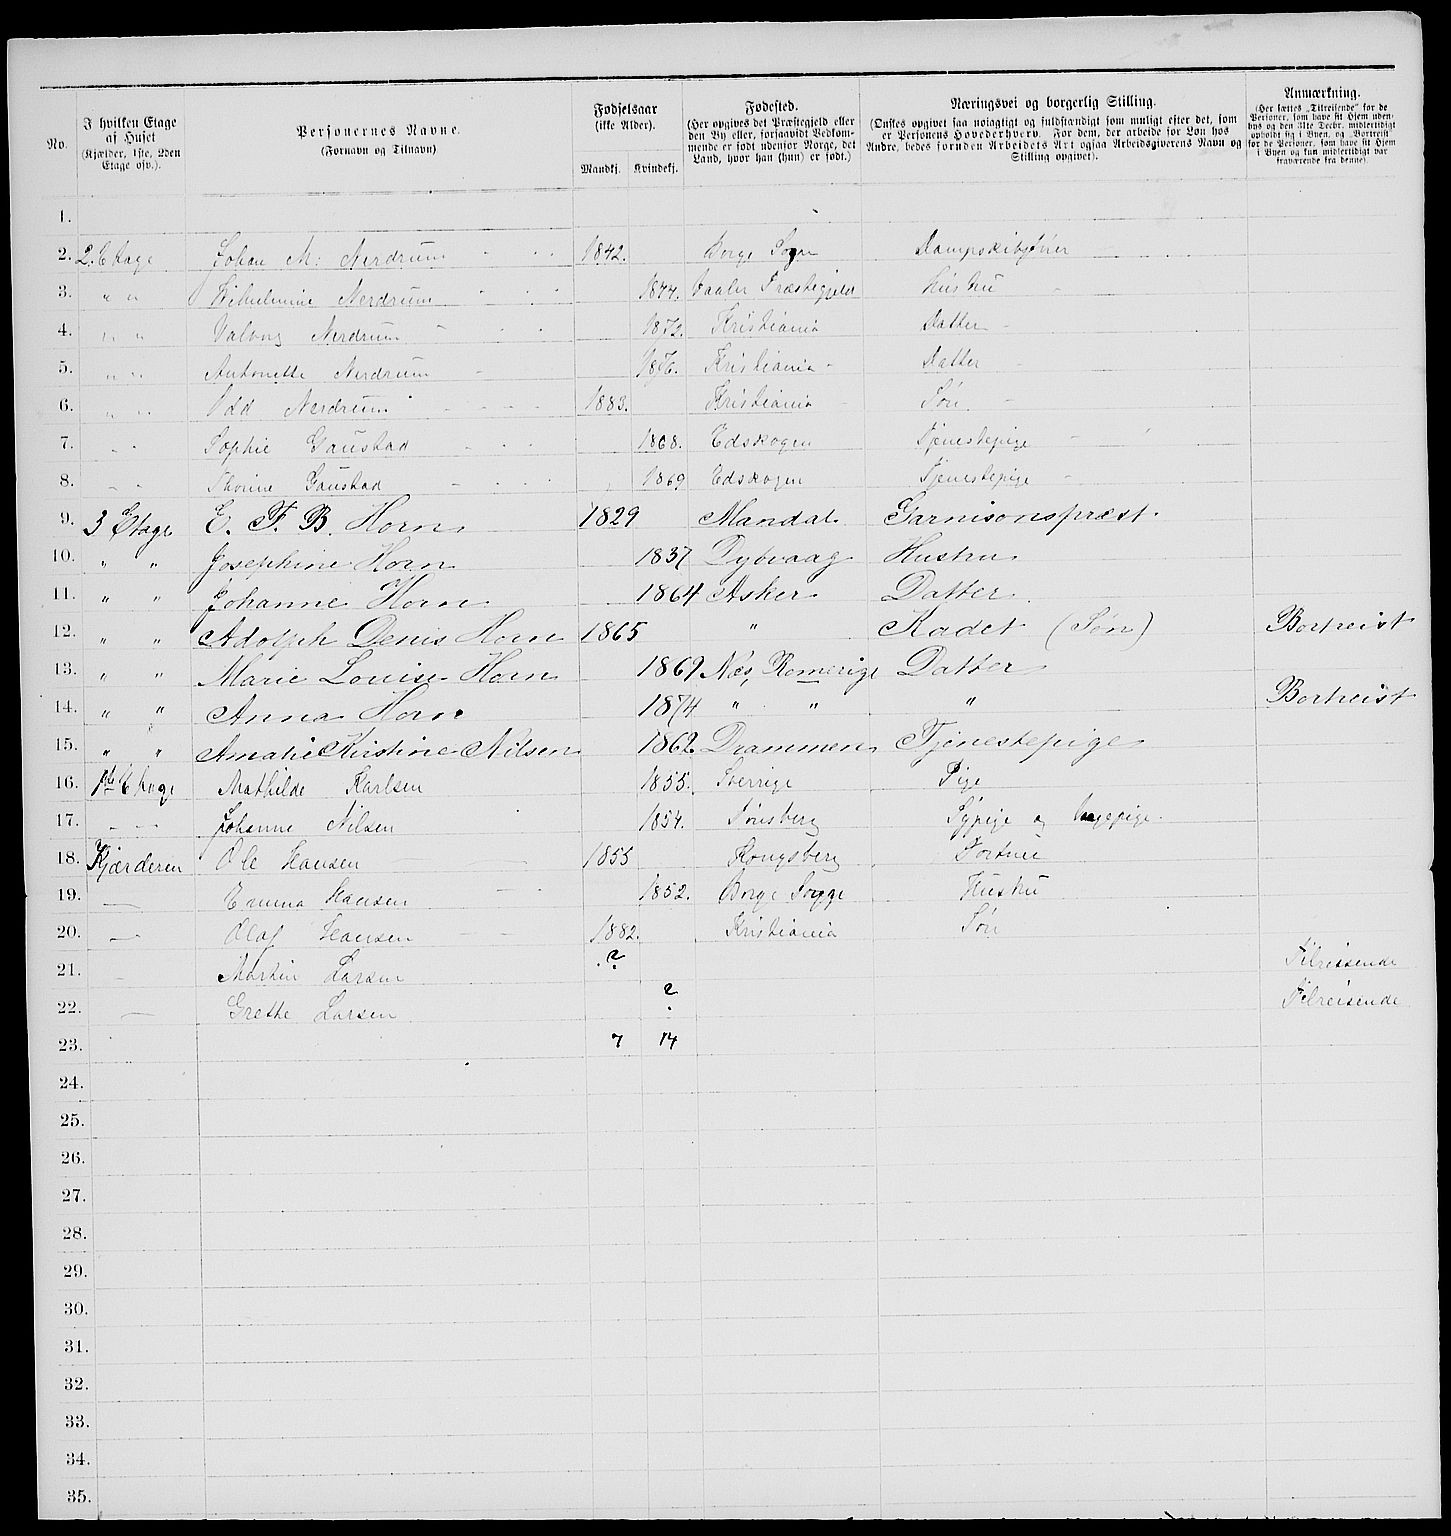 No. | I hvilken Etage af Huset (Kjælder, 1ste, 2den Etage osv.). | Personernes Navne. (Fornavn og Tilnavn) | Fødselsaar (ikke Alder). Mandkj. | Kvindekj. | Fødested. (Her opgives det Præstegjeld eller den By eller, forsaavidt Vedkommende er født udenfor Norge, det Land, hvor han (hun) er født.) | Næringsvei og borgerlig Stilling. (Ønskes opgivet saa nøiagtigt og fuldstændigt som muligt efter det, som er Personens Hovederhverv. For dem, der arbeide for Løn hos Andre, bedes foruden Arbeidets Art ogsaa Arbeidsgiverens Navn og Stilling opgivet). | Anmærkning. (Her sættes „Tilreisende" for de Personer, som have sit Hjem udenbys og den 31te Decbr. midlertidigt opholdt sig i Byen, og „Bortreist" for de Personer, som have sit Hjem i Byen og kun midlertidigt var fraværende fra denne).
1.
2. 2. Etage Johan M: Nerdrum 1842. Borge Sogn Dampskibsfører
3. " " Wilhelmine Nerdrum 1844. Vaaler Præstegjeld Hustru
4. " " Valborg Nerdrum 1872. Kristiania Datter
5. " " Antonette Nerdrum 1876. Kristiania Datter
6. " " Odd Nerdrum 1883. Kristiania Søn
7. " " Sophie Gaustad 1868. Edskogen Tjenestepige
8. " " Thorine Gaustad 1869 Edskogen Tjenestepige
9. 3 Etage E. F. B. Horn 1829 Mandal Garnisonspræst.
10. " " Josephine Horn 1837 Dybvaag Hustru
11. " " Johanne Horn 1864 Asker Datter
12. " " Adolph Denis Horn 1865 " Kadet (Søn) Bortreist
13. " " Marie Louise Horn 1869 Næs, Romerige Datter
14. " " Anna Horn 1874 " " " Bortreist
15. " " Amalie Kirstine Nilsen 1862 Drammen Tjenestepige
16. 1ste Etage Mathilde Karlsen 1855. Sverrige Pige
17. Johanne Nilsen 1854. Tønsberg Sypige og
18. Kjærderen Ole Hansen 1855 Kongsberg Portner
19. Emma Hansen 1852. Borge Hustru
20. Olaf Hansen 1882. Kristiania Søn
21. Martin Larsen ? Tilreisende
22. Grethe Larsen ? Tilreisende
23. 7 14
24.
25.
26.
27.
28.
29.
30.
31.
32.
33.
34.
35.